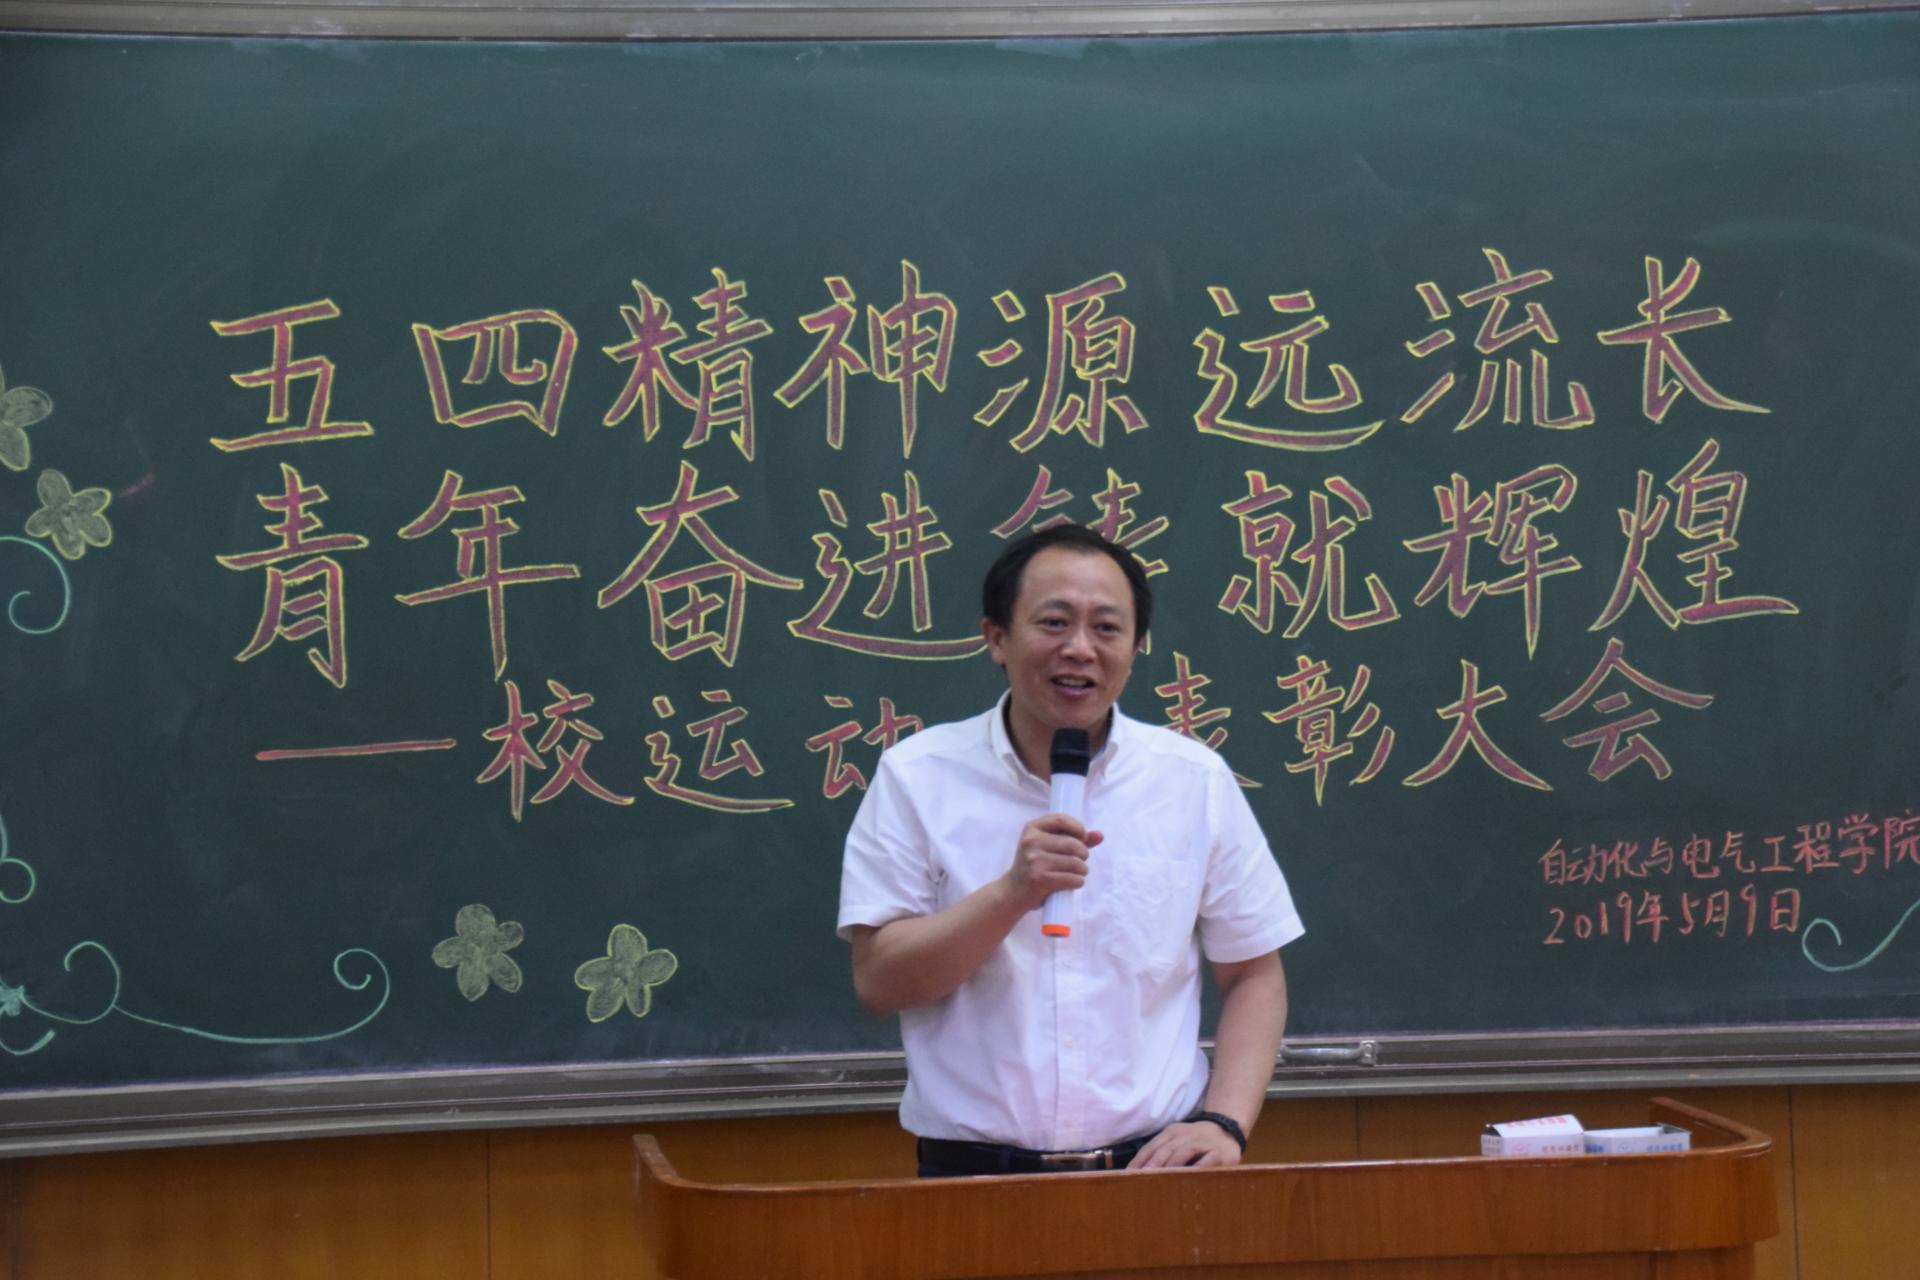 五四精神源远流长
青年奋进铸就辉煌
——校运动 表彰大会
自动化与电气工程学院
2019年5月9日